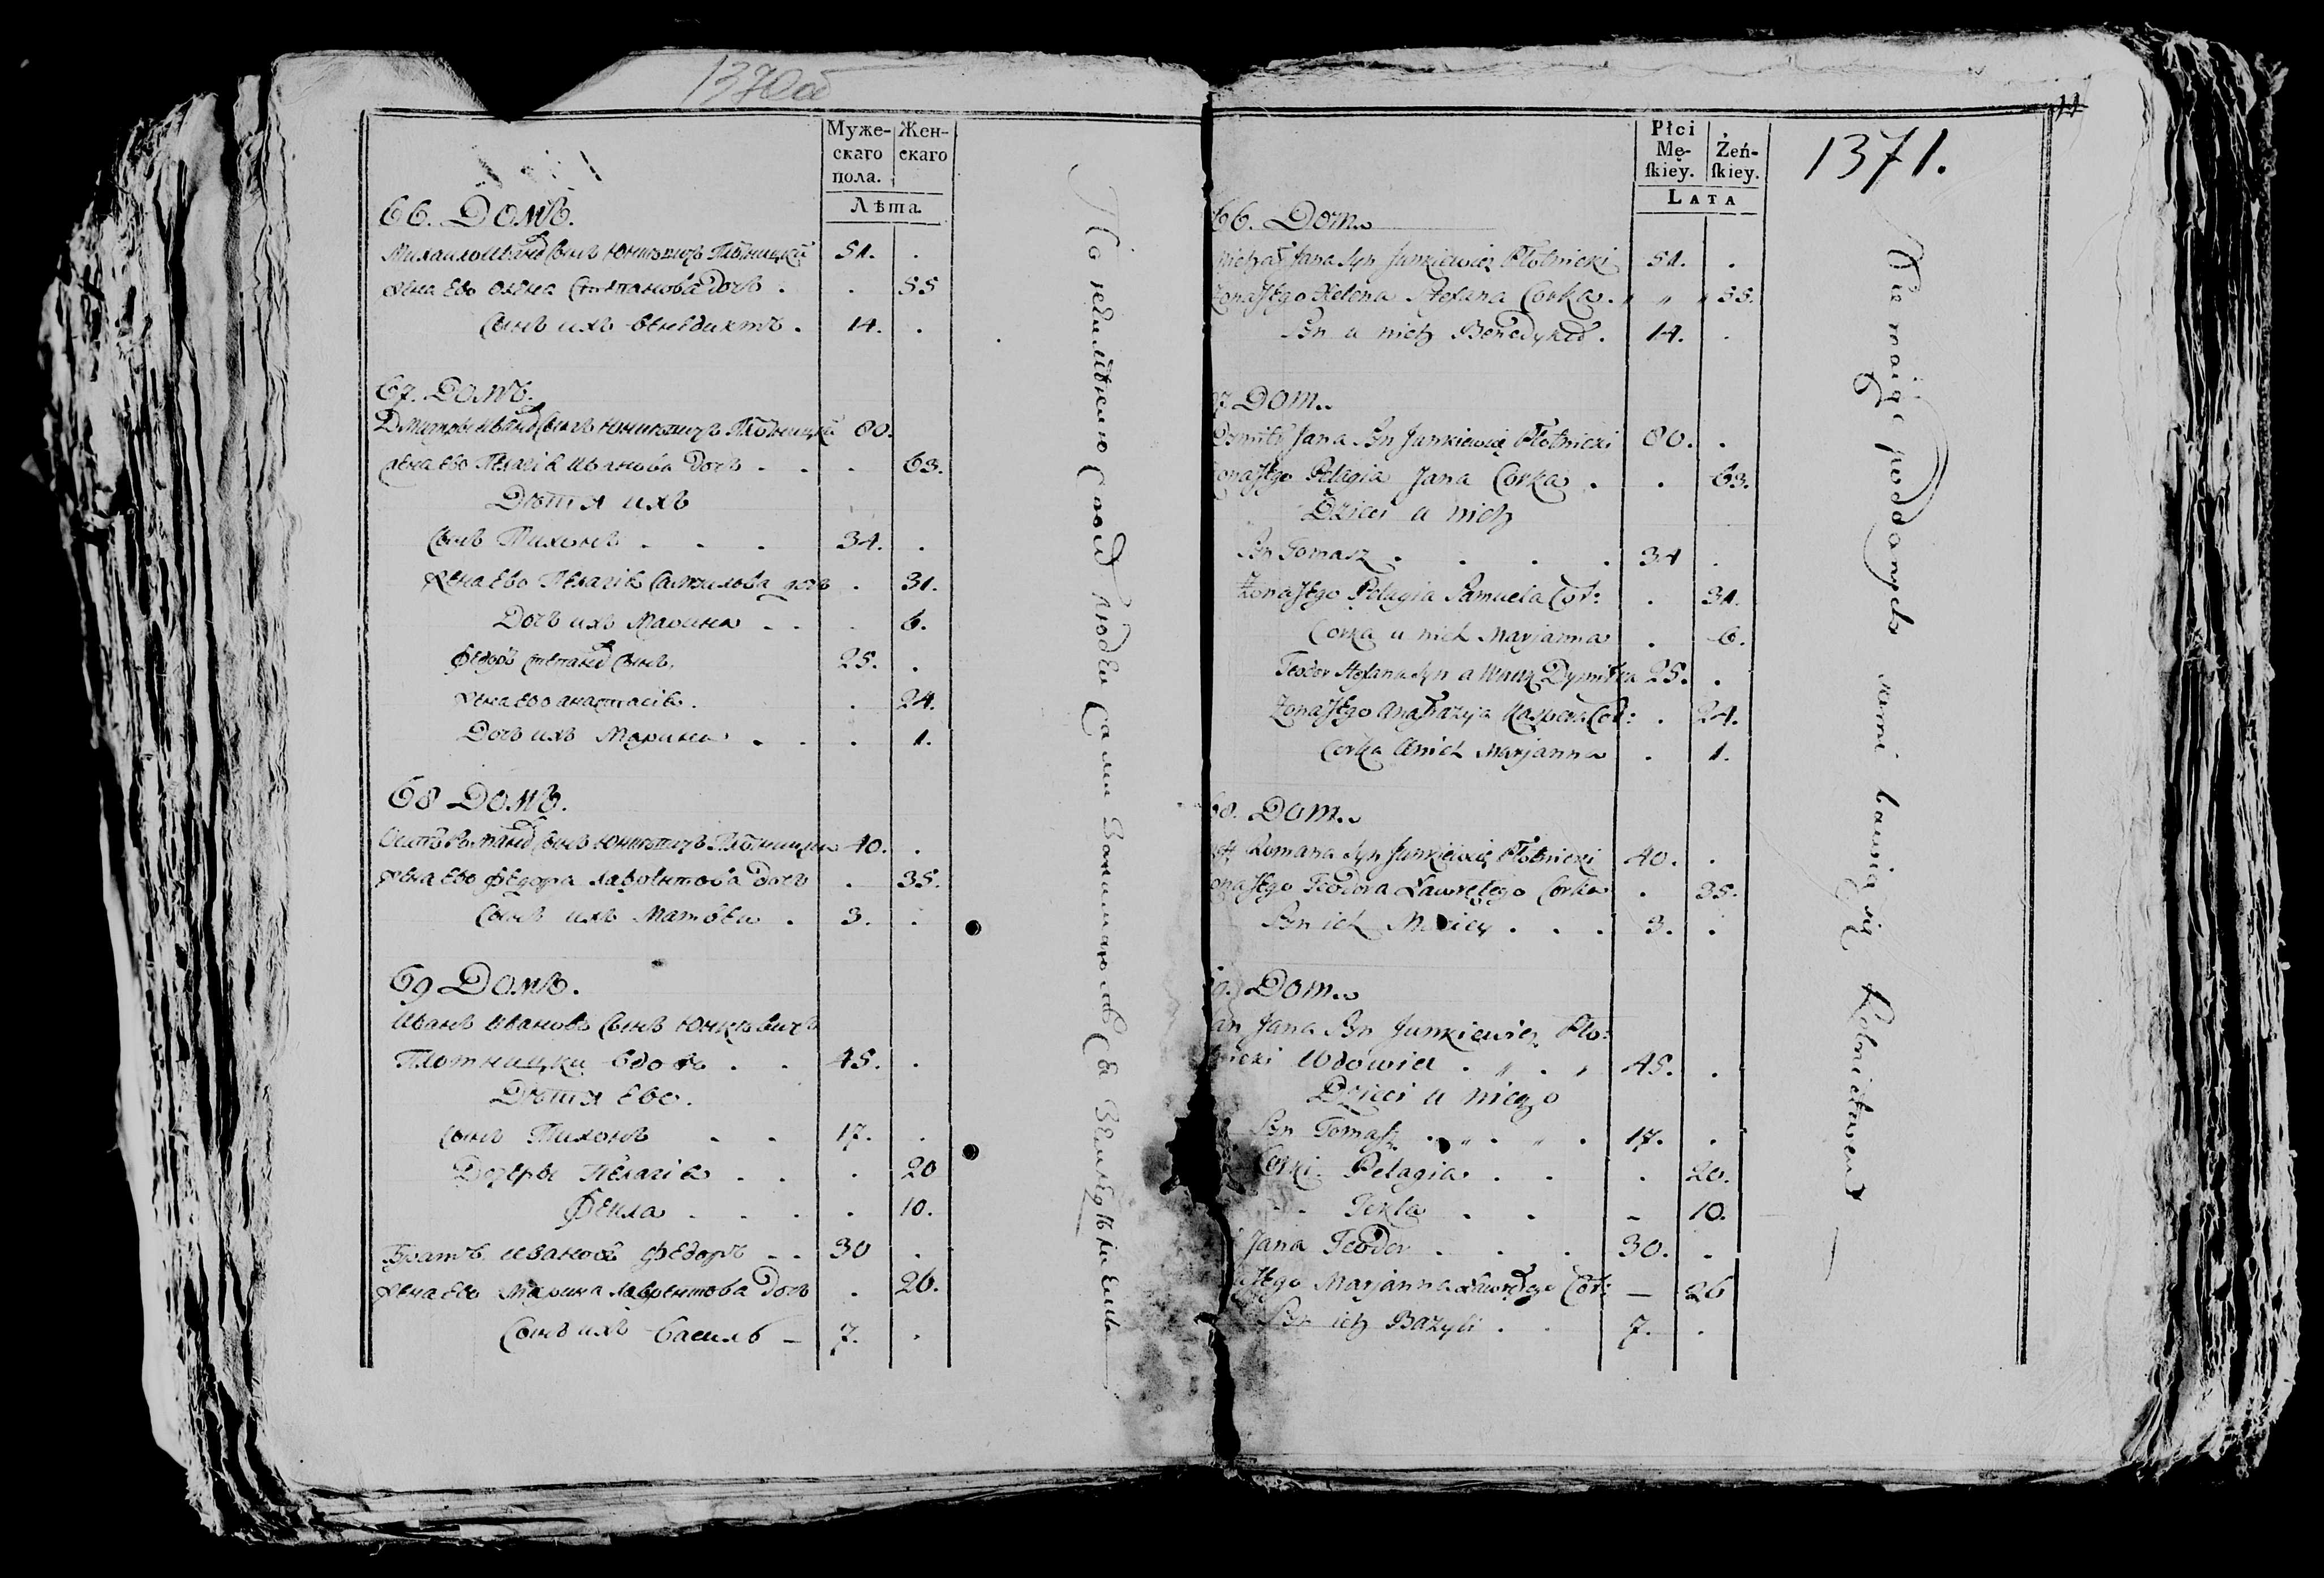 1370об
Муже-
скаго
пола.
Жен-
скаго
Лѣта
66. Домъ.
Михайло Иванов Сынъ Юнкевичъ Плотницкй 51. .
Жена Ево Олена Степанова Дочь . . 55
Сынъ ихъ Венедиктъ . 14. .
67. Домъ.
Дмитры Иванов Сынъ Юнкевичъ Плотницкй 80.
Жена Ево Пелагіѣ Иванова Дочь . . . 63.
Дѣтя ихъ
Сынъ Тихонъ . . . 34. .
Жена Ево Пелагіѣ Самуилова дочь . 31.
Дочь ихъ Марина . . . 6.
Федоръ Степанов Сынъ. 25. .
Жена Ево Анастасіѣ . . 24.
Дочь ихъ Марина . . . 1.
68 Домъ.
Осипъ Романов Сынъ Юнкевичъ Плотницки 40. .
Жена Ево Федора Лаврентова Дочь . 35.
Сынъ ихъ Матвѣи . 3. .
69 Домъ.
Иванъ Ивановъ Сынъ Юнкевичъ
Плотницки вдовъ . . 45. .
Дѣтя Ево.
Сынъ Тихонъ . . 17. .
Дочеры Пелагіѣ . . . 20
Фекла . . . . 10.
Братъ Ивановъ Федоръ . . 30 .
Жена Ево Марина Лаврентова Дочь . 26.
Сынъ ихъ Василь – 7. .
По неимѣнию Своихъ людеи Сами Занимаются Земледѣлиемъ
11
1371.
Płci
Mę-
ſkiey.
Żeń-
ſkiey.
LATA
66. Dom.
Michał Jana Syn Junkiewicz Płotnicki 51. .
Żona Jego Helena Stefana Corka . „ „ „ 55.
Syn u nich Benedykt . 14. .
67 Dom.
Dymitr Jana Syn Junkiewicz Płotnicki 80. .
Żona Jego Pelagia Jana Corka . . 63.
Dzieci u nich
Syn Tomasz . . . . 34 .
Żona Jego Pelagia Samuela Cor: . 31.
Corka u nich Marjanna . 6.
Teodor Stefana Syn a Wnuk Dymitra 25. .
Żona Jego Anastazyja Kaspera Cor: . 24.
Corka u nich Marjanna . 1.
68. Dom.
Romana Syn Junkiewicz Płotnicki 40. .
Żona Jego Teodora Ławrętego Corka . 35.
Syn ich Maciey . . . 3. .
69. Dom.
Jan Jana Syn Junkiewicz Pło:
tnicki Wdowiec . „ . „ 45. .
Dzieci u niego
Syn Tomasz . „ . „ . 17. .
Corki Pelagia . . . 20.
Tekla . . – 10.
Jana Teodor . . . 30. .
Jego Marjanna Ławrętego Cor: – 26
Syn ich Bazyli . . 7. .
Nie maiąc poddanych sami bawią się Rolnictwem